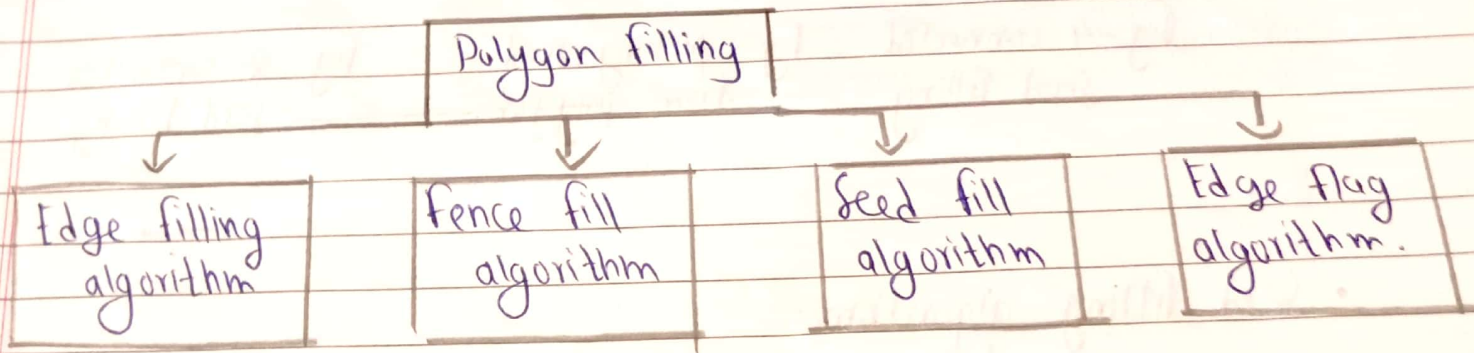 Polygon filling
Edge filling
algorithm
Fence fill
algorithm
Seed fill
algorithm
Edge flag
algorithm.